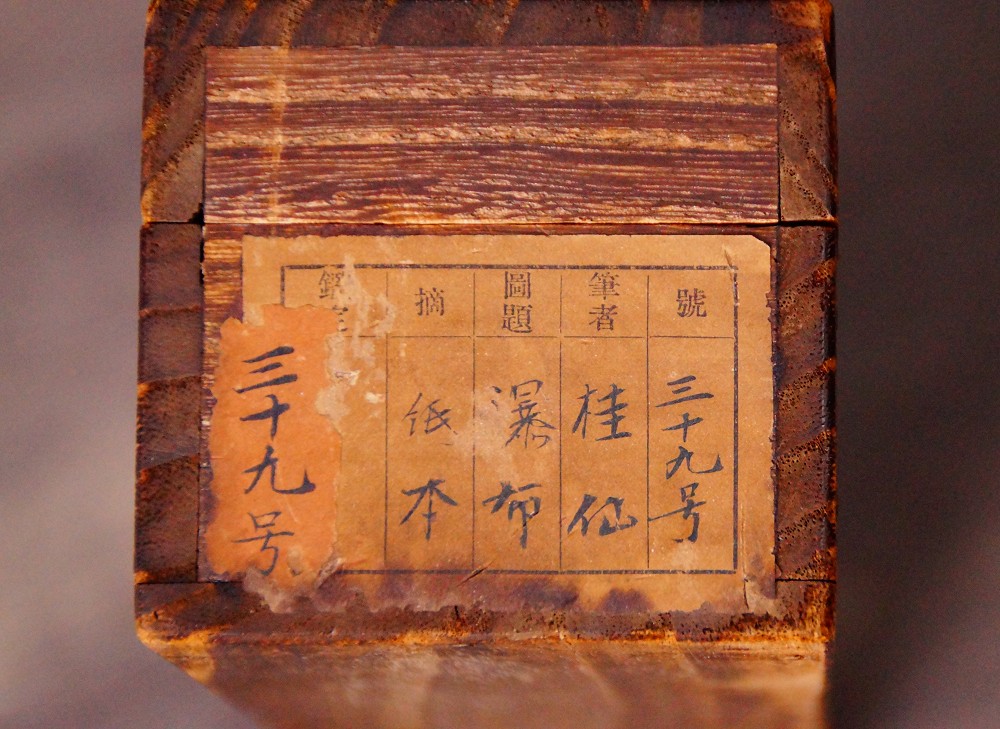 號
三十九号
筆者
桂仙
圖題
瀑布
摘
紙本
三十九号